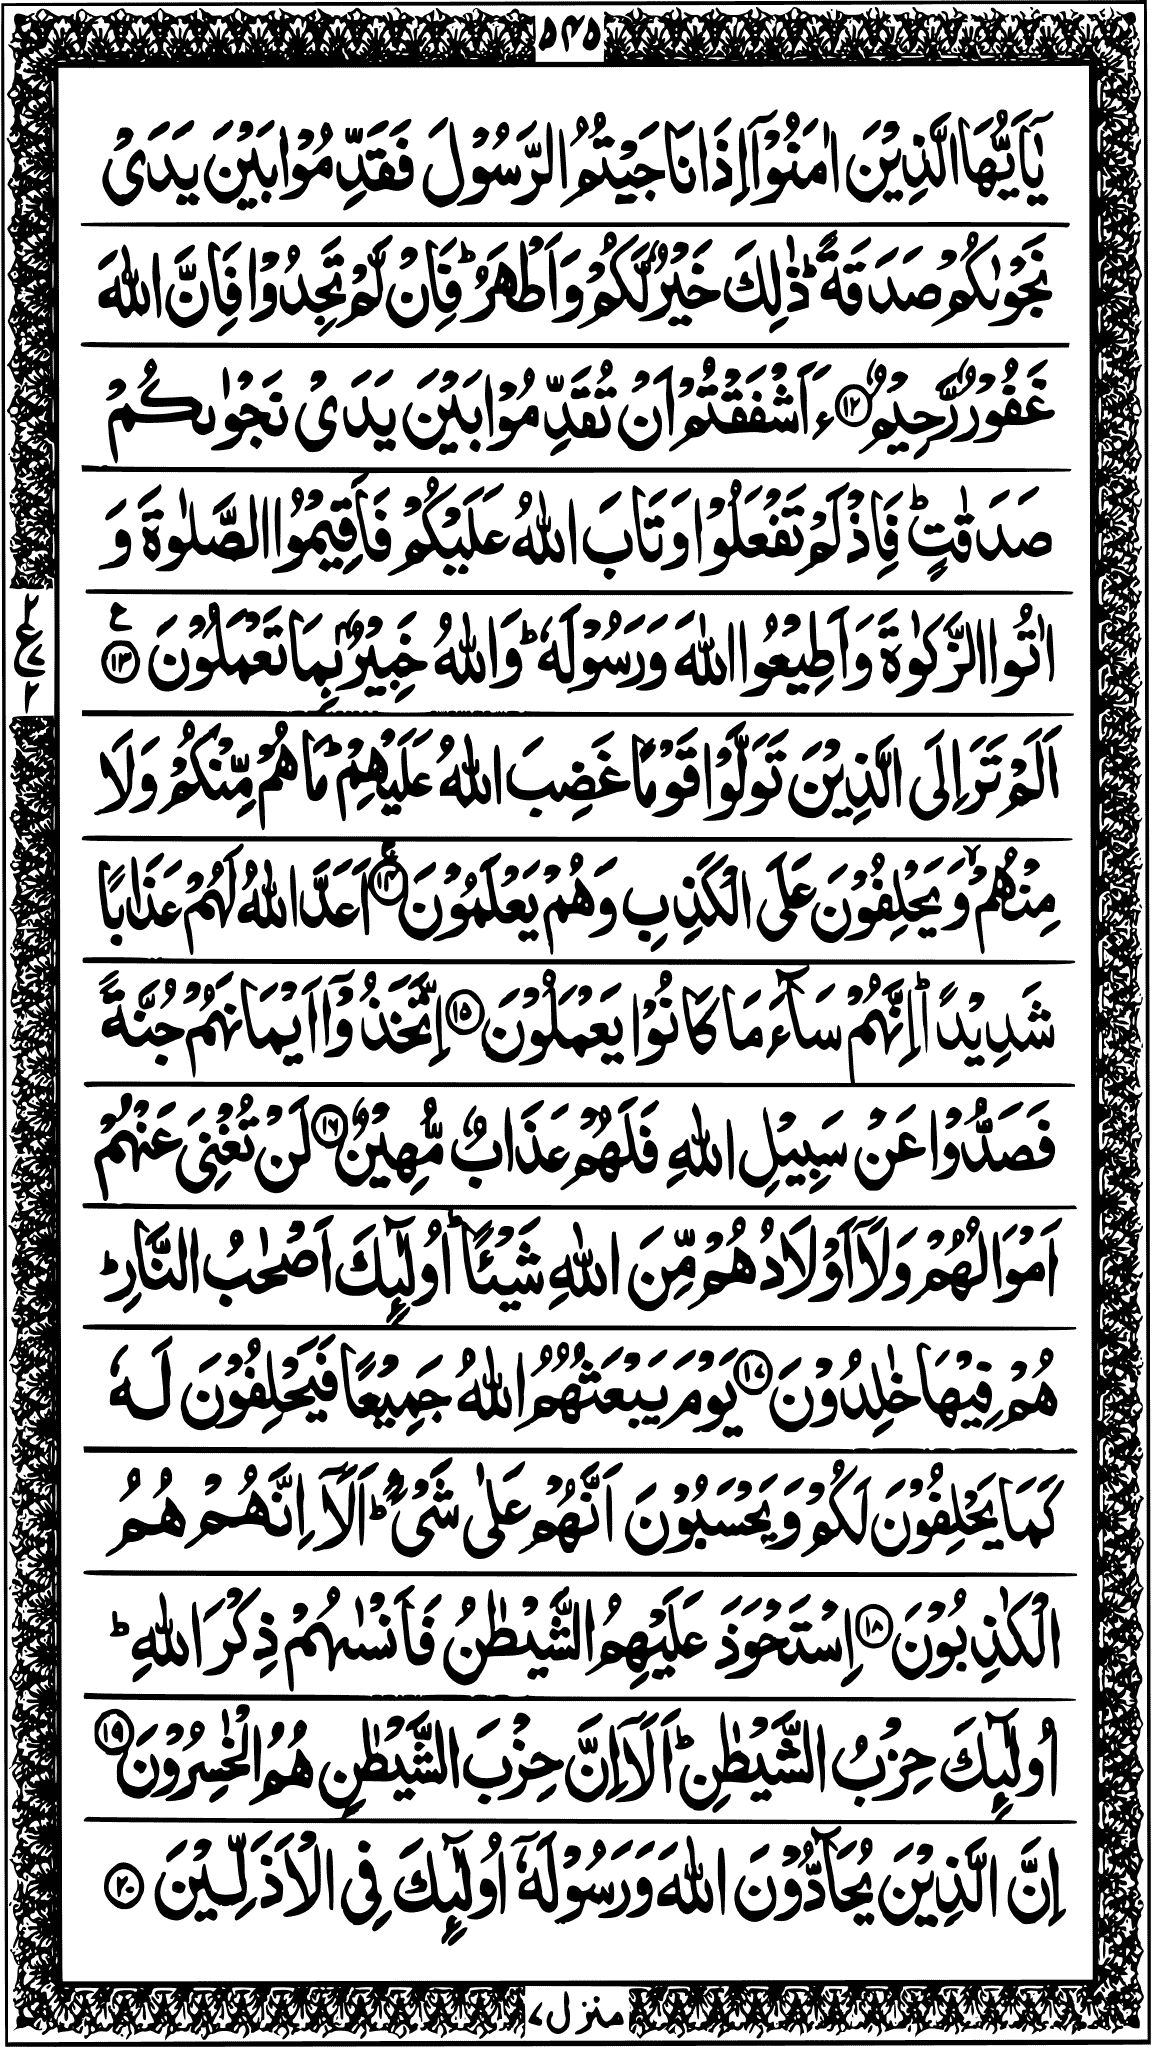 ۵۴۵
يٰۤاَيُّهَا الَّذِيْنَ اٰمَنُوْۤا اِذَا نَاجَيْتُمُ الرَّسُوْلَ فَقَدِّمُوْا بَيْنَ يَدَيْ
نَجْوٰىكُمْ صَدَقَةً ؕ ذٰلِكَ خَيْرٌ لَّكُمْ وَ اَطْهَرُ ؕ فَاِنْ لَّمْ تَجِدُوْا فَاِنَّ اللّٰهَ
غَفُوْرٌ رَّحِيْمٌ ﴿۱۲﴾ ءَاَشْفَقْتُمْ اَنْ تُقَدِّمُوْا بَيْنَ يَدَيْ نَجْوٰىكُمْ
صَدَقٰتٍ ؕ فَاِذْ لَمْ تَفْعَلُوْا وَ تَابَ اللّٰهُ عَلَيْكُمْ فَاَقِيْمُوا الصَّلٰوةَ وَ
اٰتُوا الزَّكٰوةَ وَ اَطِيْعُوا اللّٰهَ وَ رَسُوْلَهٗ ؕ وَ اللّٰهُ خَبِيْرٌۢ بِمَا تَعْمَلُوْنَ ﴿۱۳﴾ ع
۲ ع ۷ ۲
اَلَمْ تَرَ اِلَى الَّذِيْنَ تَوَلَّوْا قَوْمًا غَضِبَ اللّٰهُ عَلَيْهِمْ ؕ مَا هُمْ مِّنْكُمْ وَ لَا
مِنْهُمْ ۙ وَ يَحْلِفُوْنَ عَلَى الْكَذِبِ وَ هُمْ يَعْلَمُوْنَ ﴿۱۴﴾ اَعَدَّ اللّٰهُ لَهُمْ عَذَابًا
شَدِيْدًا ؕ اِنَّهُمْ سَآءَ مَا كَانُوْا يَعْمَلُوْنَ ﴿۱۵﴾ اِتَّخَذُوْۤا اَيْمَانَهُمْ جُنَّةً
فَصَدُّوْا عَنْ سَبِيْلِ اللّٰهِ فَلَهُمْ عَذَابٌ مُّهِيْنٌ ﴿۱۶﴾ لَنْ تُغْنِيَ عَنْهُمْ
اَمْوَالُهُمْ وَ لَاۤ اَوْلَادُهُمْ مِّنَ اللّٰهِ شَيْـًٔا ؕ اُولٰٓئِكَ اَصْحٰبُ النَّارِ ؕ
هُمْ فِيْهَا خٰلِدُوْنَ ﴿۱۷﴾ يَوْمَ يَبْعَثُهُمُ اللّٰهُ جَمِيْعًا فَيَحْلِفُوْنَ لَهٗ
كَمَا يَحْلِفُوْنَ لَكُمْ وَ يَحْسَبُوْنَ اَنَّهُمْ عَلٰى شَيْءٍ ؕ اَلَاۤ اِنَّهُمْ هُمُ
الْكٰذِبُوْنَ ﴿۱۸﴾ اِسْتَحْوَذَ عَلَيْهِمُ الشَّيْطٰنُ فَاَنْسٰىهُمْ ذِكْرَ اللّٰهِ ؕ
اُولٰٓئِكَ حِزْبُ الشَّيْطٰنِ ؕ اَلَاۤ اِنَّ حِزْبَ الشَّيْطٰنِ هُمُ الْخٰسِرُوْنَ ﴿۱۹﴾
اِنَّ الَّذِيْنَ يُحَآدُّوْنَ اللّٰهَ وَ رَسُوْلَهٗۤ اُولٰٓئِكَ فِي الْاَذَلِّيْنَ ﴿۲۰﴾
منزل ۷